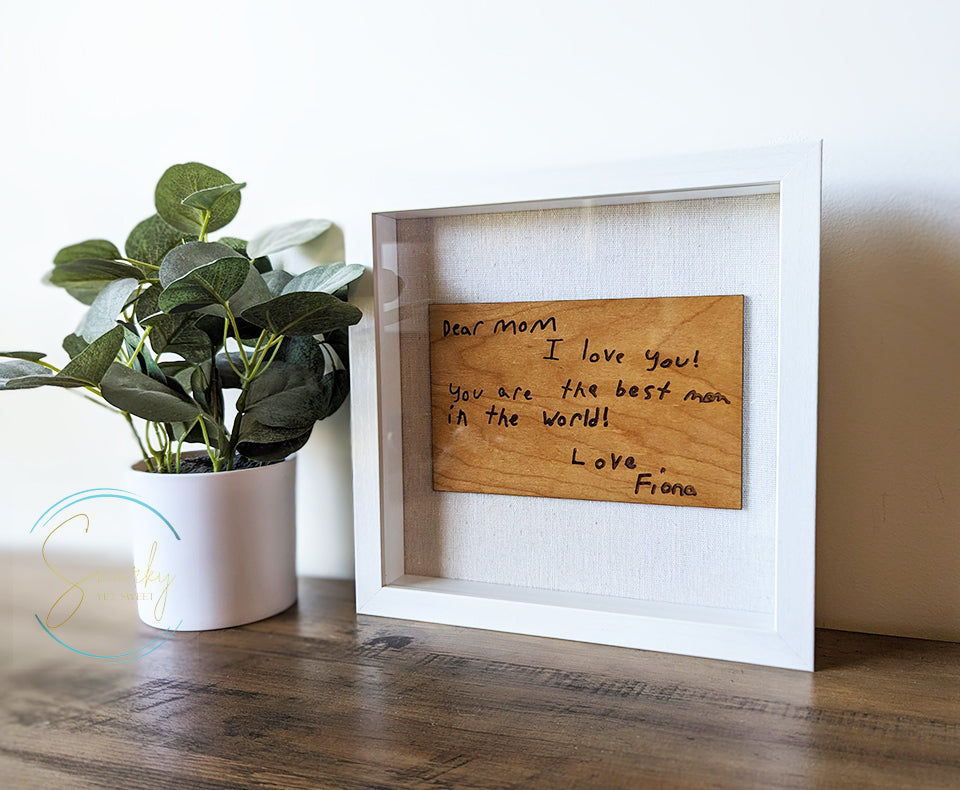 Dear MOM
I love you!
you are the best mom
in the world!
Love,
Fiona
Snarky
YET SWEET